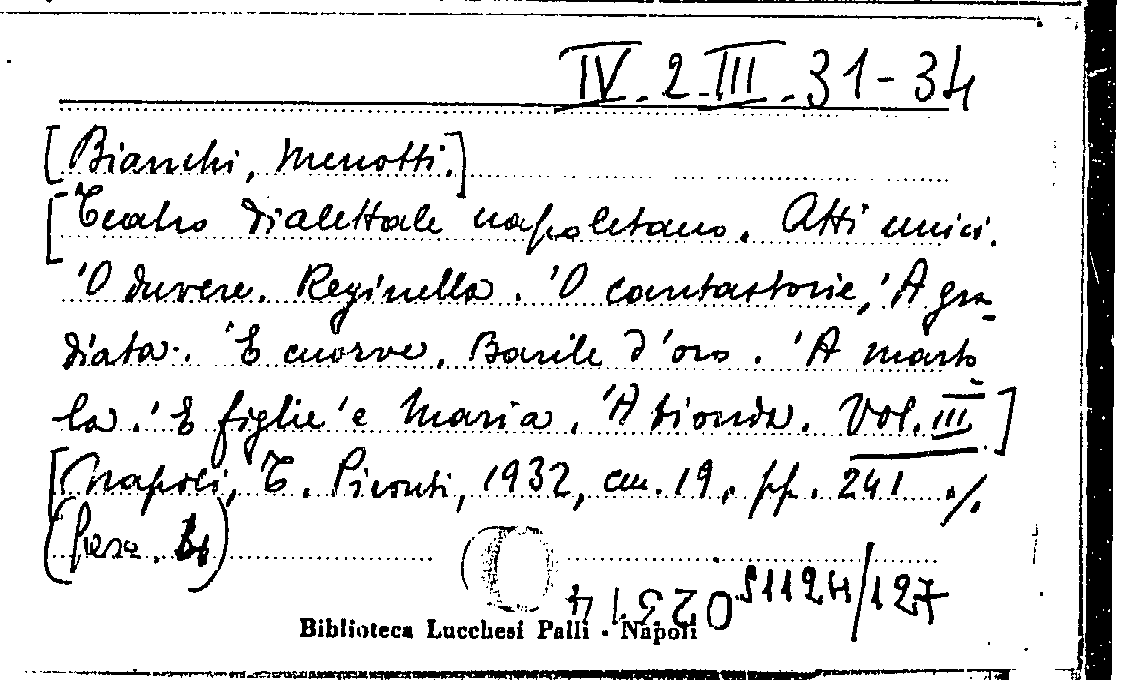 IV. 2. III. 31-34
[Bianchi, Menotti.]
[Teatro dialettale napoletano. Atti unici.
'O duvere. Reginella. 'O cantastorie, 'A gra-
diata. 'E cuorve. Barile d'oro. 'A marto-
la. 'E figlie 'e Maria. 'A bionda. Vol. III]
[Napoli, T. Pironti, 1932, cm. 19, pp. 241 ./.
S1124/127
02314
Biblioteca Lucchesi Palli - Napoli